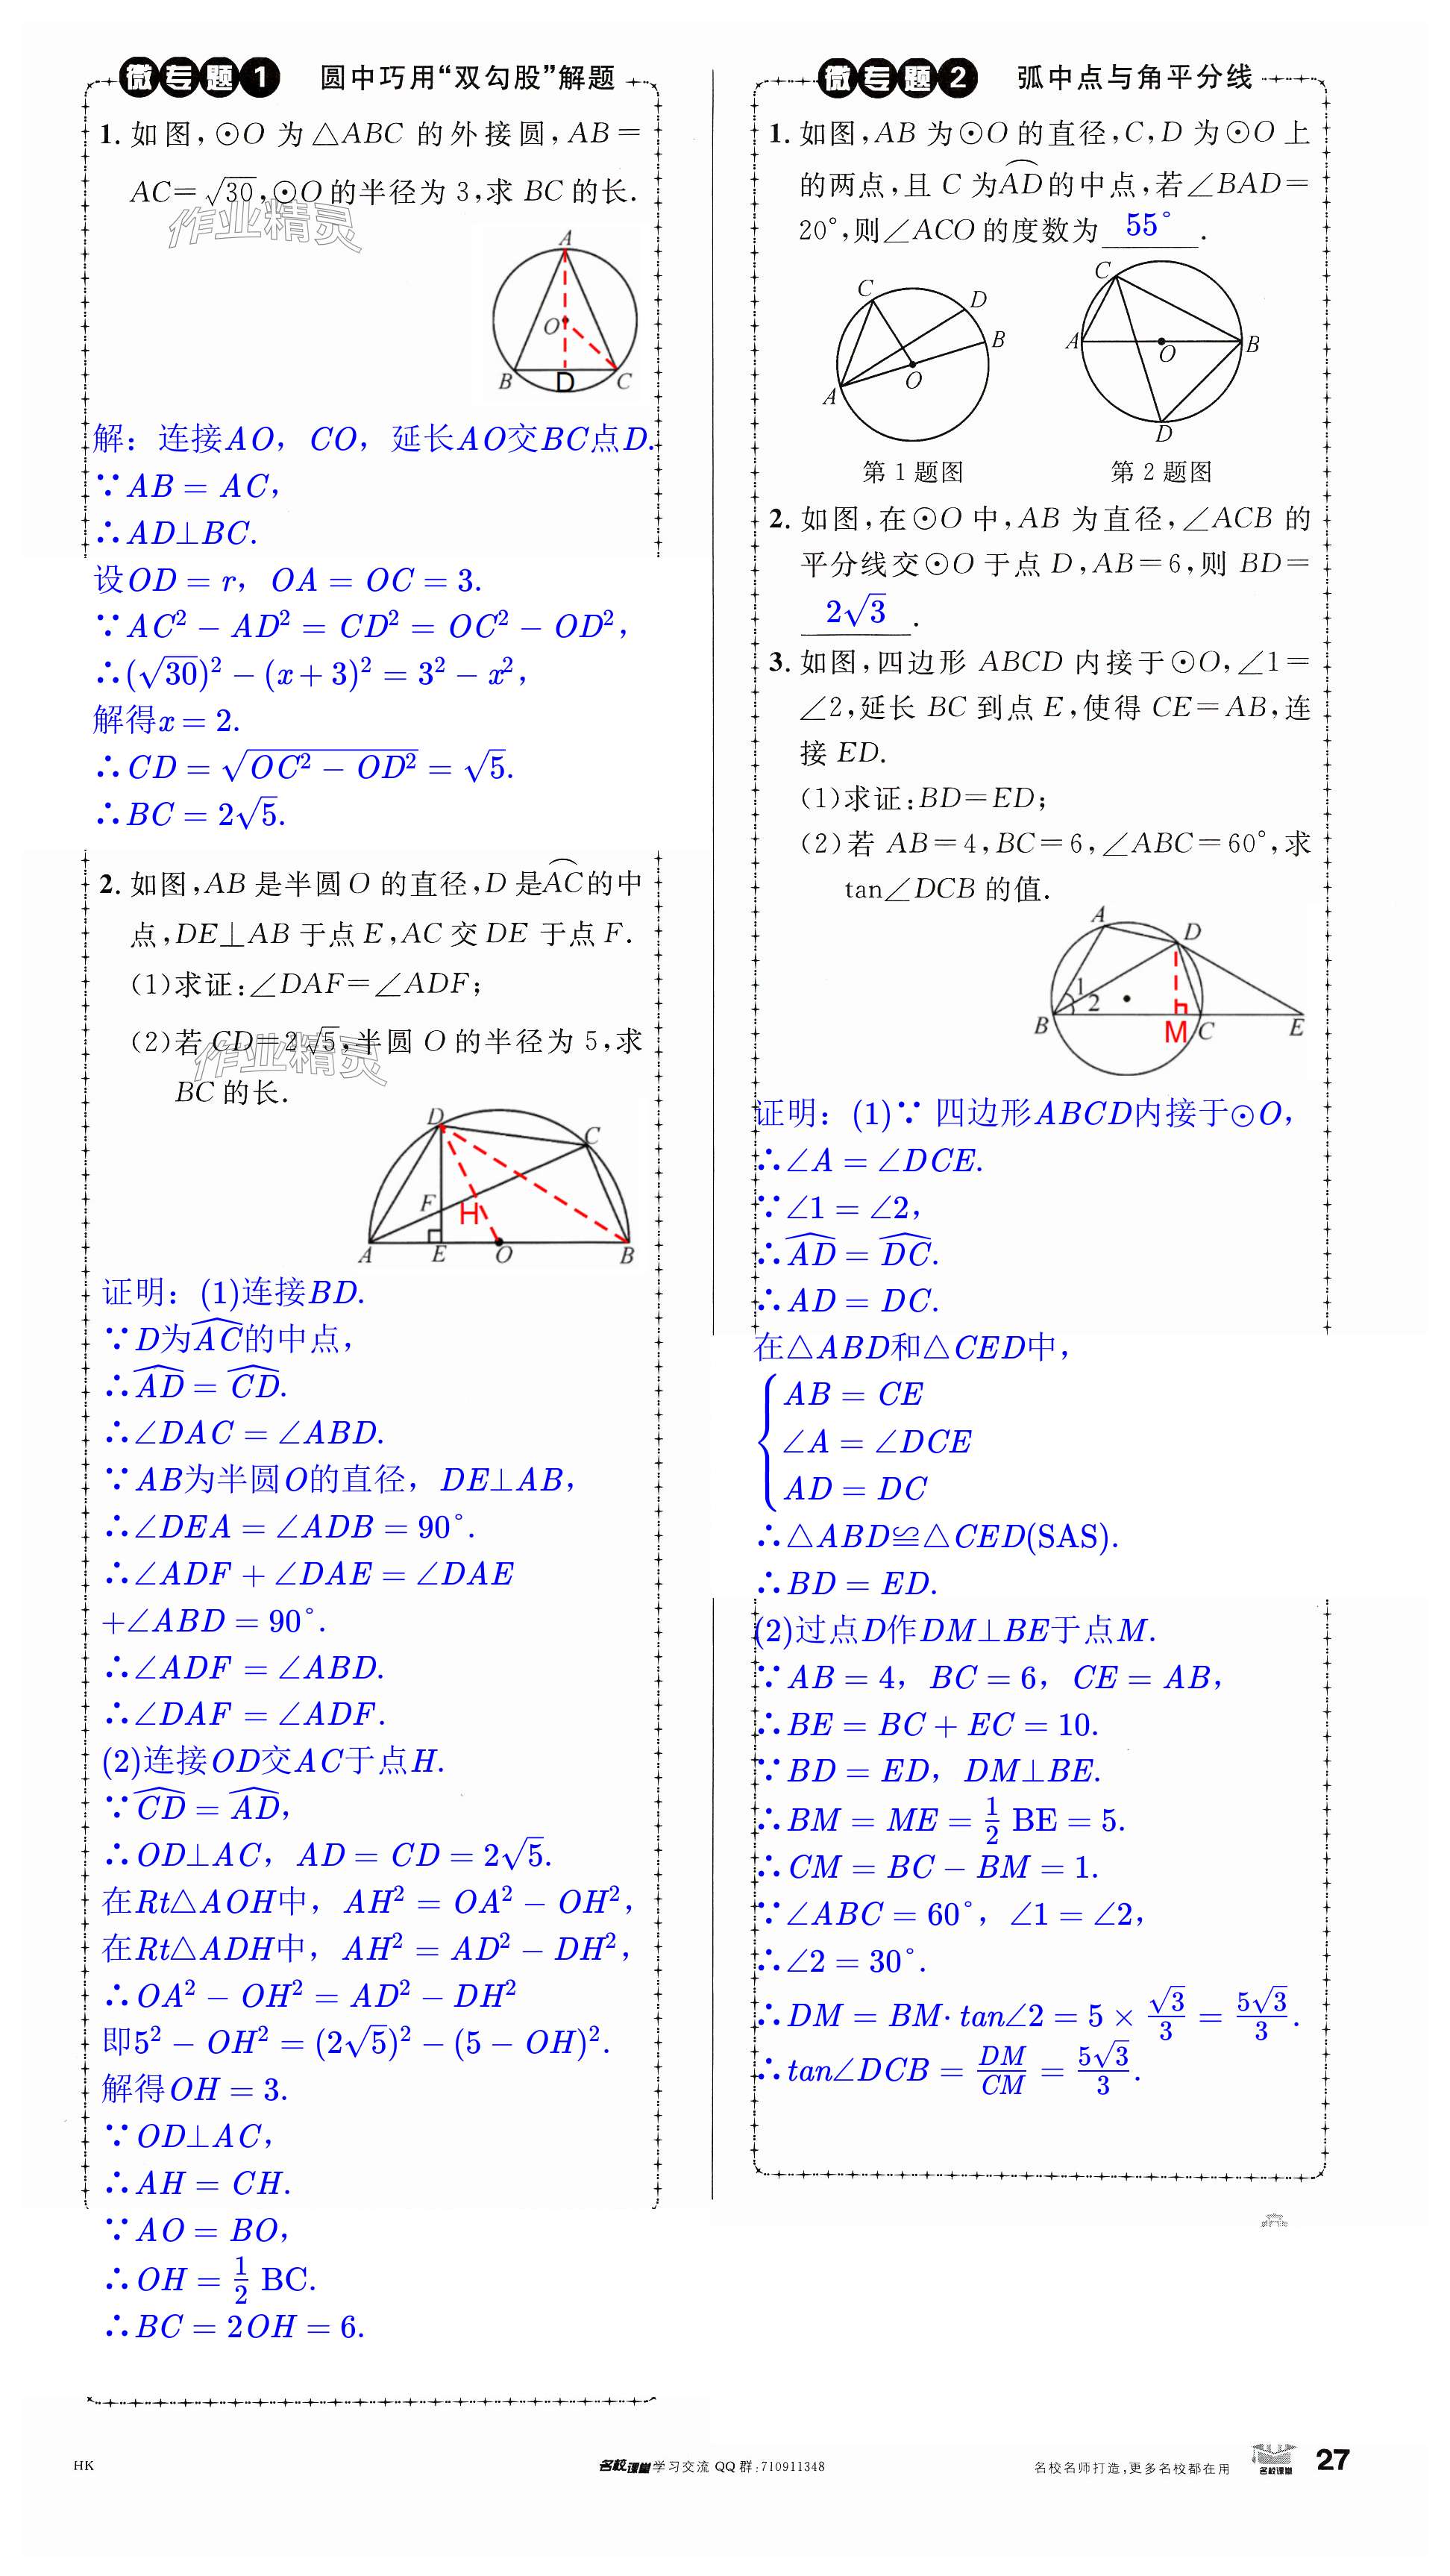 微专题1 圆中巧用“双勾股”解题
1. 如图,⊙O 为△ABC 的外接圆,AB=
AC=√30,⊙O的半径为3,求 BC 的长.
作业精灵
A
O
B D C
解：连接AO，CO，延长AO交BC点D.
∵AB = AC，
∴AD⊥BC.
设OD = r，OA = OC = 3.
∵AC² − AD² = CD² = OC² − OD²，
∴(√30)² − (x + 3)² = 3² − x²，
解得x = 2.
∴CD = √(OC² − OD²) = √5.
∴BC = 2√5.
2. 如图,AB 是半圆 O 的直径,D 是A͡C的中
点,DE⊥AB 于点 E,AC 交 DE 于点 F.
(1)求证:∠DAF=∠ADF;
(2)若 CD=2√5,半圆 O 的半径为 5,求
BC 的长.
作业精灵
D
C
F
H
A E O B
证明：(1)连接BD.
∵D为A͡C的中点，
∴A͡D = C͡D.
∴∠DAC = ∠ABD.
∵AB为半圆O的直径，DE⊥AB，
∴∠DEA = ∠ADB = 90°.
∴∠ADF + ∠DAE = ∠DAE
+∠ABD = 90°.
∴∠ADF = ∠ABD.
∴∠DAF = ∠ADF.
(2)连接OD交AC于点H.
∵C͡D = A͡D，
∴OD⊥AC，AD = CD = 2√5.
在Rt△AOH中，AH² = OA² − OH²，
在Rt△ADH中，AH² = AD² − DH²，
∴OA² − OH² = AD² − DH²
即5² − OH² = (2√5)² − (5 − OH)².
解得OH = 3.
∵OD⊥AC，
∴AH = CH.
∵AO = BO，
∴OH = 1/2 BC.
∴BC = 2OH = 6.
微专题2 弧中点与角平分线
1. 如图,AB 为⊙O 的直径,C,D 为⊙O 上
的两点,且 C 为A͡D的中点,若∠BAD=
20°,则∠ACO 的度数为 55° .
C D B O A
C A O B D
第 1 题图 第 2 题图
2. 如图,在⊙O 中,AB 为直径,∠ACB 的
平分线交⊙O 于点 D,AB=6,则 BD=
2√3 .
3. 如图,四边形 ABCD 内接于⊙O,∠1=
∠2,延长 BC 到点 E,使得 CE=AB,连
接 ED.
(1)求证:BD=ED;
(2)若 AB=4,BC=6,∠ABC=60°,求
tan∠DCB 的值.
A
D
1
2
B M C E
证明：(1)∵ 四边形ABCD内接于⊙O，
∴∠A = ∠DCE.
∵∠1 = ∠2，
∴A͡D = D͡C.
∴AD = DC.
在△ABD和△CED中，
AB = CE
∠A = ∠DCE
AD = DC
∴△ABD≌△CED(SAS).
∴BD = ED.
(2)过点D作DM⊥BE于点M.
∵AB = 4，BC = 6，CE = AB，
∴BE = BC + EC = 10.
∵BD = ED，DM⊥BE.
∴BM = ME = 1/2 BE = 5.
∴CM = BC − BM = 1.
∵∠ABC = 60°，∠1 = ∠2，
∴∠2 = 30°.
∴DM = BM· tan∠2 = 5 × √3/3 = 5√3/3.
∴tan∠DCB = DM/CM = 5√3/3.
HK
名校课堂学习交流 QQ 群:710911348
名校名师打造,更多名校都在用
名校课堂
27